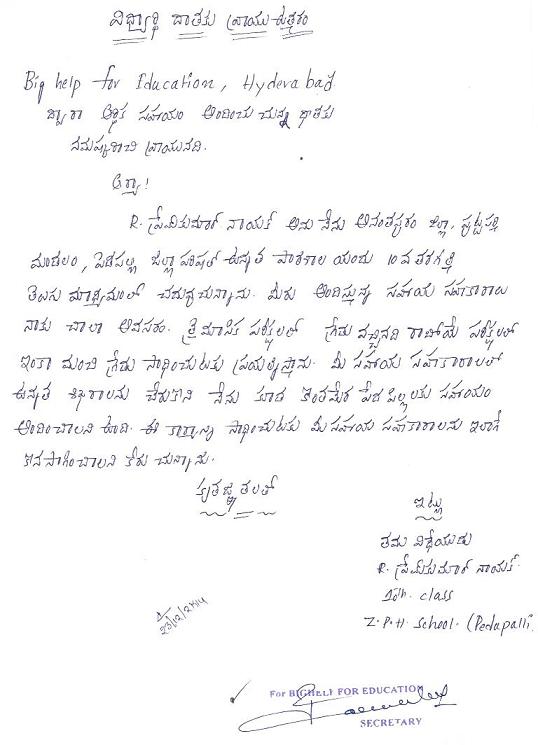 విద్యార్థి దాతకు వ్రాయు ఉత్తరం
Big help for Education, Hyderabad
ద్వారా ఆర్థిక సహాయం అందించు చున్న దాతకు
నమస్కరించి వ్రాయునది.
ఆర్యా!
R. ప్రేమ్‌కుమార్ నాయక్ అను నేను అనంతపురం జిల్లా, పుట్టపర్తి
మండలం, పెడపల్లి జిల్లా పరిషత్ ఉన్నత పాఠశాల యందు 10వ తరగతి
తెలుగు మాధ్యమంలో చదువుచున్నాను. మీరు అందిస్తున్న సహాయ సహకారాలు
నాకు చాలా అవసరం. త్రైమాసిక పరీక్షలలో గ్రేడు వచ్చినది రాబోయే పరీక్షలలో
ఇంకా మంచి గ్రేడు సాధించుటకు ప్రయత్నిస్తాను. మీ సహాయ సహకారాలతో
ఉన్నత శిఖరాలను చేరుకొని నేను కూడ కొంతమేర పేద పిల్లలకు సహాయం
అందించాలని ఉంది. ఈ కార్యాన్ని సాధించుటకు మీ సహాయ సహకారాలను ఇలాగే
కొనసాగించాలని కోరు చున్నాను.
కృతజ్ఞతలతో
ఇట్లు
తమ విధేయుడు
R. ప్రేమ్‌కుమార్ నాయక్.
10th. class
Z.P.H. School. (Pedapalli
23/12/2014
For BIGHELP FOR EDUCATION
SECRETARY